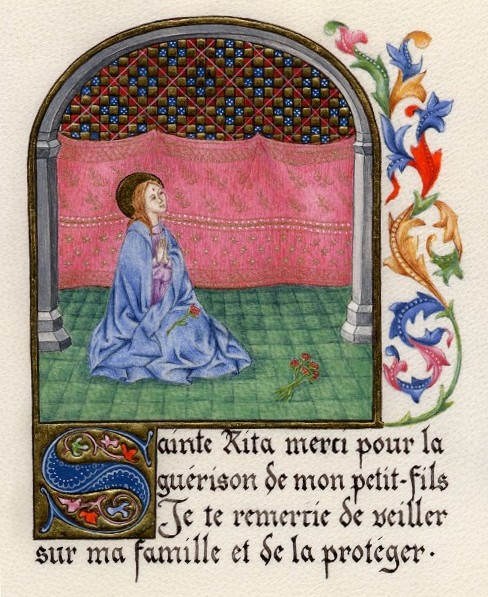 Sainte Rita merci pour la
guérison de mon petit-fils
Je te remercie de veiller
sur ma famille et de la protéger.